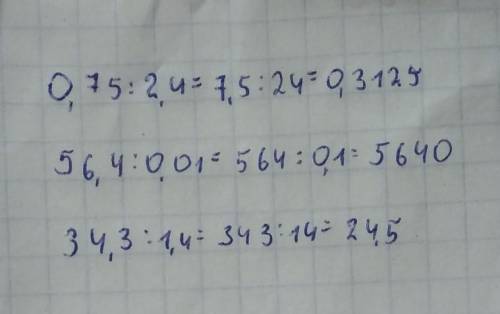 0,75:2,4=7,5:24=0,3125
56,4:0,01=564:0,1=5640
34,3:1,4=343:14=24,5